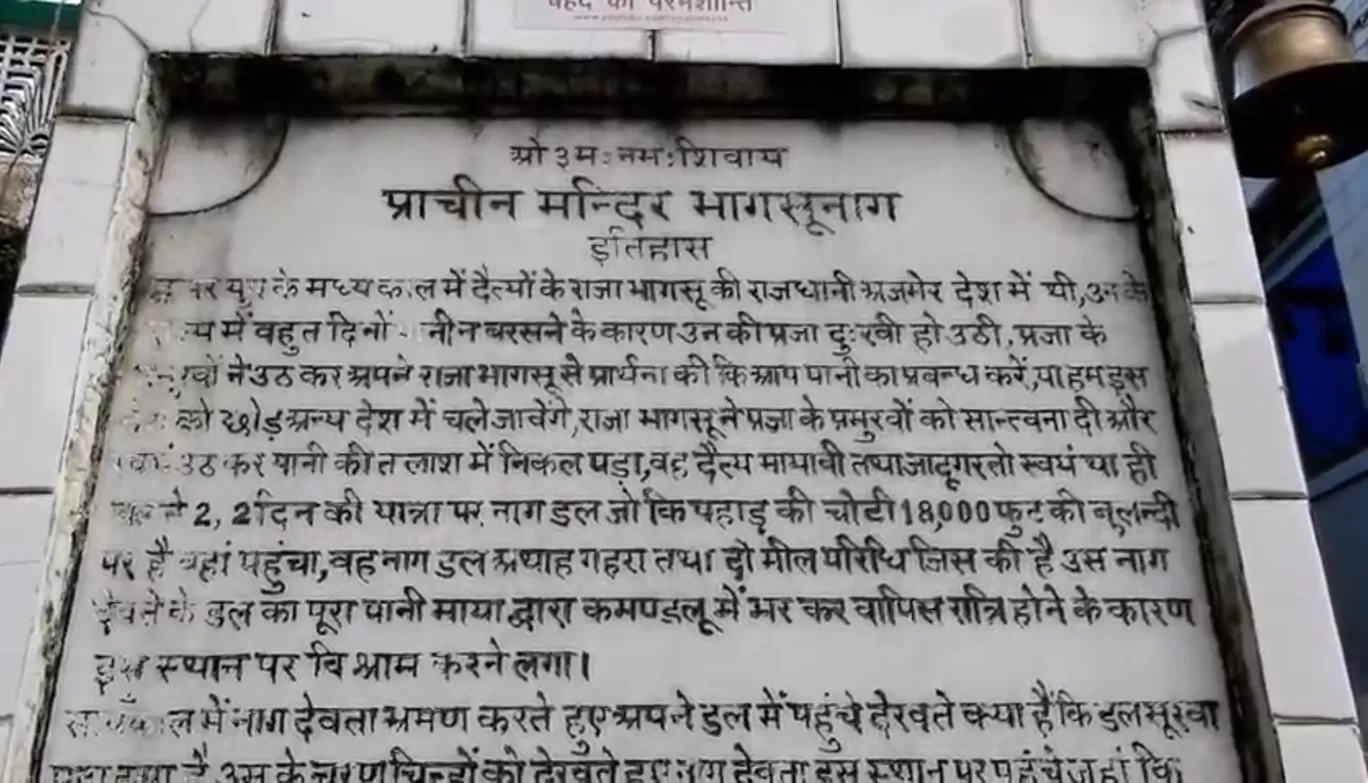 बेहद की परमशान्ति
ओ ३म: नम: शिवाय
प्राचीन मन्दिर भागसूनाग
इतिहास
के मध्य काल में दैत्यों के राजा भागसू की राजधानी अजमेर देश में थी, उनके
में वहुत दिनों बरसने के कारण उनकी प्रजा दु:खी हो उठी, प्रजा के
ने उठ कर अपने राजा भागसू से प्रार्थना की कि आप पानी का प्रबन्ध करें, या हम इस
को छोड़ अन्य देश में चले जावेंगे, राजा भागसू ने प्रजा के प्रमुखों को सान्त्वना दी और
उठ कर पानी की तलाश में निकल पड़ा, वह दैत्य मायावी तथा जादूगर तो स्वयं था ही
2, 2 दिन की यात्रा पर नाग डल जो कि पहाड़ की चोटी 18,000 फुट की बुलन्दी
पर है वहां पहुंचा, वह नाग डल अथाह गहरा तथा दो मील परिधि जिस की है उस नाग
के डल का पूरा पानी माया द्वारा कमण्डलू में भर कर वापिस रात्रि होने के कारण
इस स्थान पर विश्राम करने लगा।
में नाग देवता भ्रमण करते हुए अपने डुल में पहुंचे देखते क्या हैं कि डुल सूखा
है उस के चरण चिन्हों को देखते हुए नाग देवता इस स्थान पर पहुंचे जहां कि